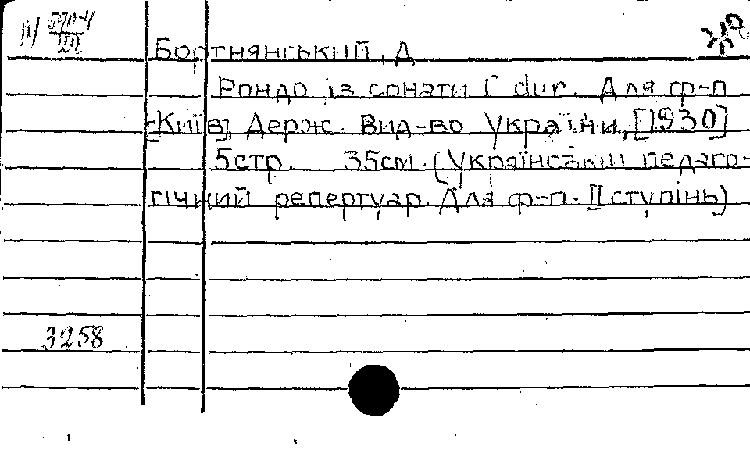 Бортнянський, Д
Рондо із сонати C dur. Для ф-п
[Київ], Держ. Вид-во України, [1930]
5стр. 35см. (Український педаго-
гічний репертуар. Для ф-п. II ступінь)
3258